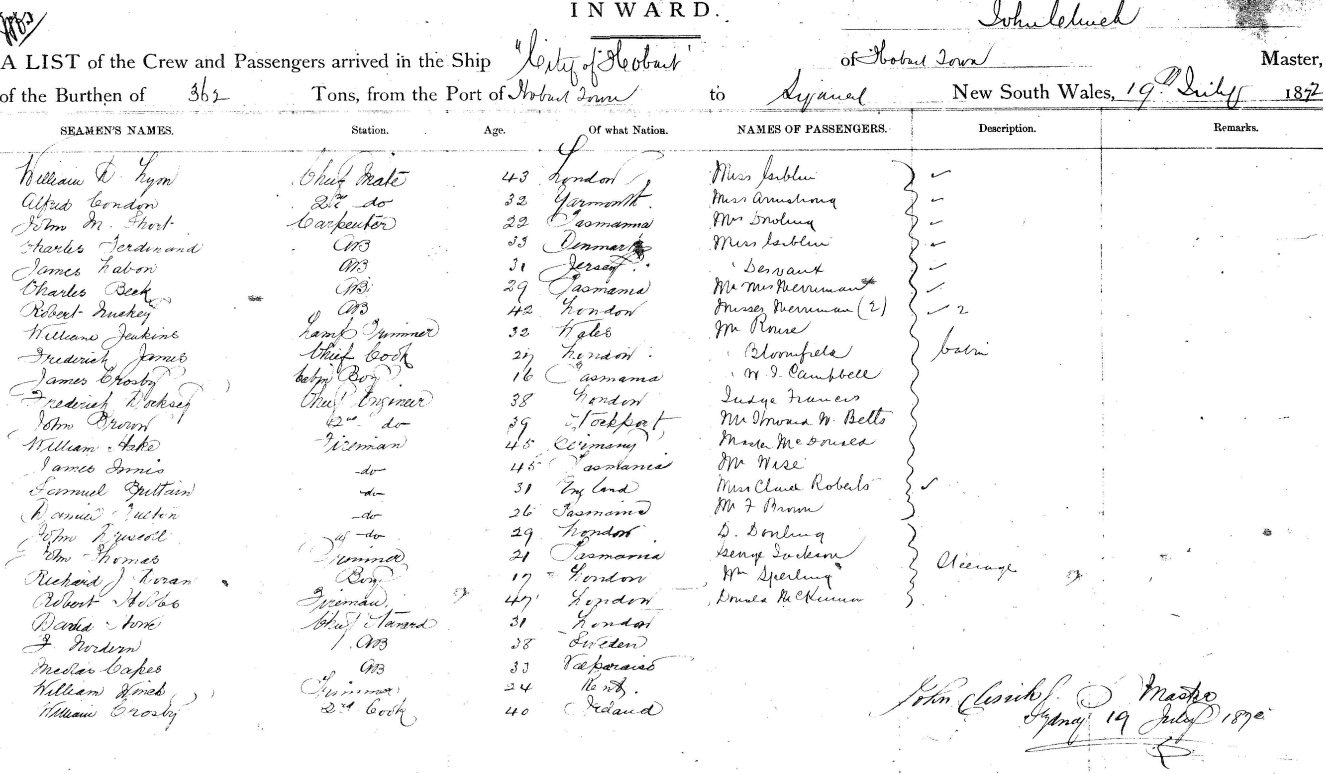 INWARD.
John Clinch
A LIST of the Crew and Passengers arrived in the Ship "City of Hobart" of Hobart Town Master,
of the Burthen of 362 Tons, from the Port of Hobart Town to Sydney New South Wales, 19th July 1872
SEAMEN'S NAMES. Station. Age. Of what Nation. NAMES OF PASSENGERS. Description. Remarks.
William Lyon Chief Mate 43 London Miss Giblin
Alfred Condon 2nd do 32 Yarmouth Miss Armstrong
John M. Short Carpenter 22 Tasmania Mrs Dowling
Charles Ferdinand AB 33 Denmark Miss Giblin
James Labon AB 31 Jersey " Servant
Charles Beck AB 29 Tasmania Mr Mrs Merriman
Robert AB 42 London Misses Merriman (2) 2
William Jenkins Lamp Trimmer 32 Wales Mr Rouse
Frederick James Chief Cook 27 London " Bloomfield Cabin
James Crosby Cabin Boy 16 Tasmania " W. Campbell
Frederick Chief Engineer 38 London Judge Francis
John Brown 2nd do 39 Stockport Mr W. Betts
William Hake Fireman 45 Germany Master McDonald
James Innis do 45 Tasmania Mr Wise
Samuel Brittain do 31 England Miss Clara Roberts
Daniel do 26 Tasmania Mr F Brown
John Driscoll do 29 London D. Dowling
John Thomas Trimmer 21 Tasmania George Jackson
Richard J Horan Boy 17 London Wm Sperling Steerage
Robert Hobbs Fireman 47 London Donald McKinnon
David Chief Steward 31 London
F Nordern AB 38 Sweden
Medlar Capes AB 33 Valparaiso
William Winch Trimmer 24 Kent
William Crosby 2nd Cook 40 Ireland
John Clinch Master
Sydney 19 July 1872